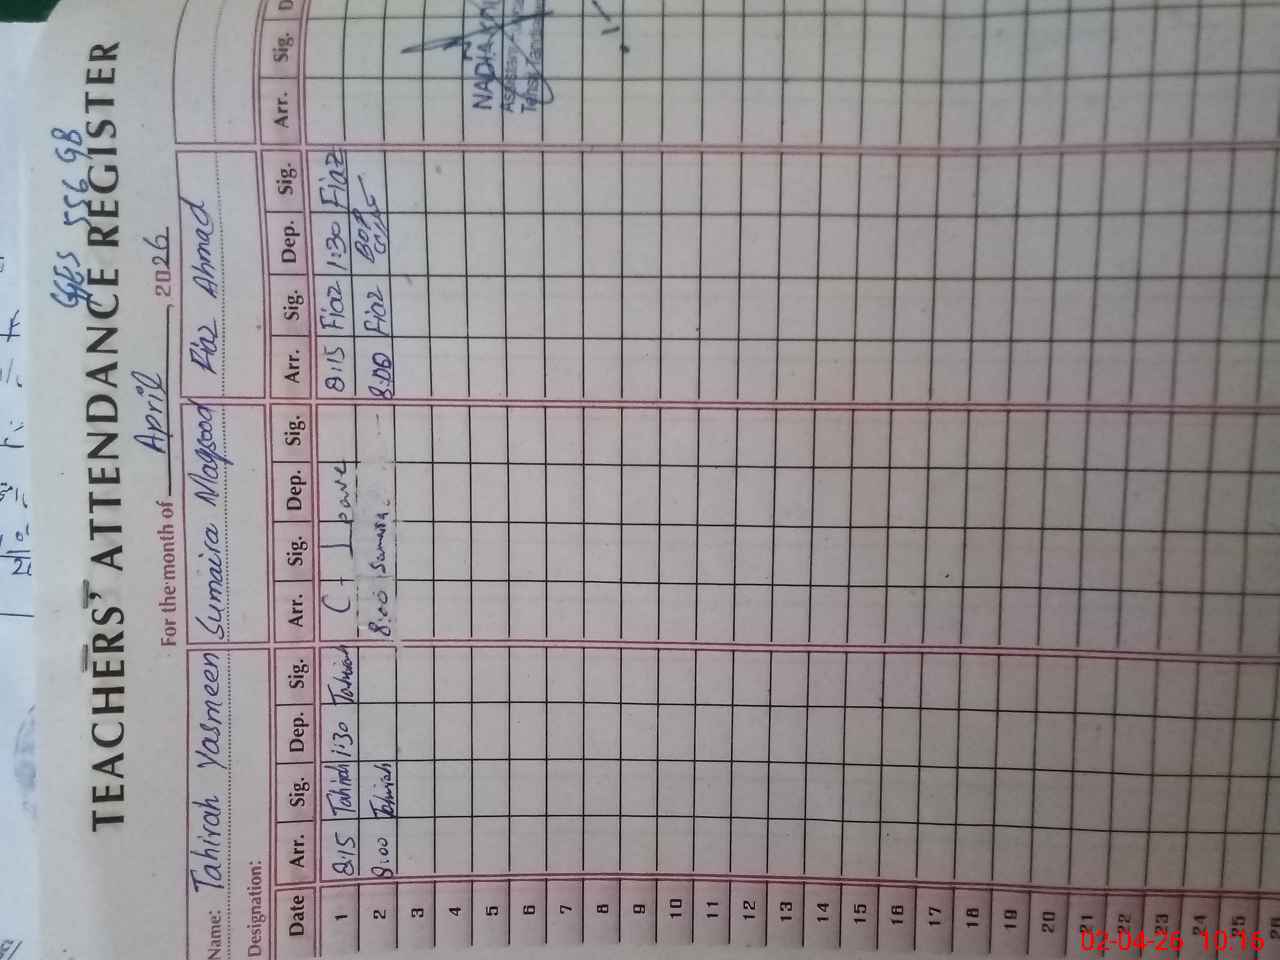 GGES 556 GB
TEACHERS' ATTENDANCE REGISTER
For the month of April, 2026
Name: Tahirah Yasmeen Sumaira Maqsood Fiaz Ahmad
Designation:
Date Arr. Sig. Dep. Sig. Arr. Sig. Dep. Sig. Arr. Sig. Dep. Sig. Arr. Sig. D
1 8:15 Tahirah 1:30 Tahirah C - Leave 8:15 Fiaz 1:30 Fiaz
2 8:00 Tahirah 8:00 Sumaira 8:00 Fiaz
3
4
5 NADIA
6
7
8
9
10
11
12
13
14
15
16
17
18
19
20
21
22
23
24
25
26
02-04-26 10:16